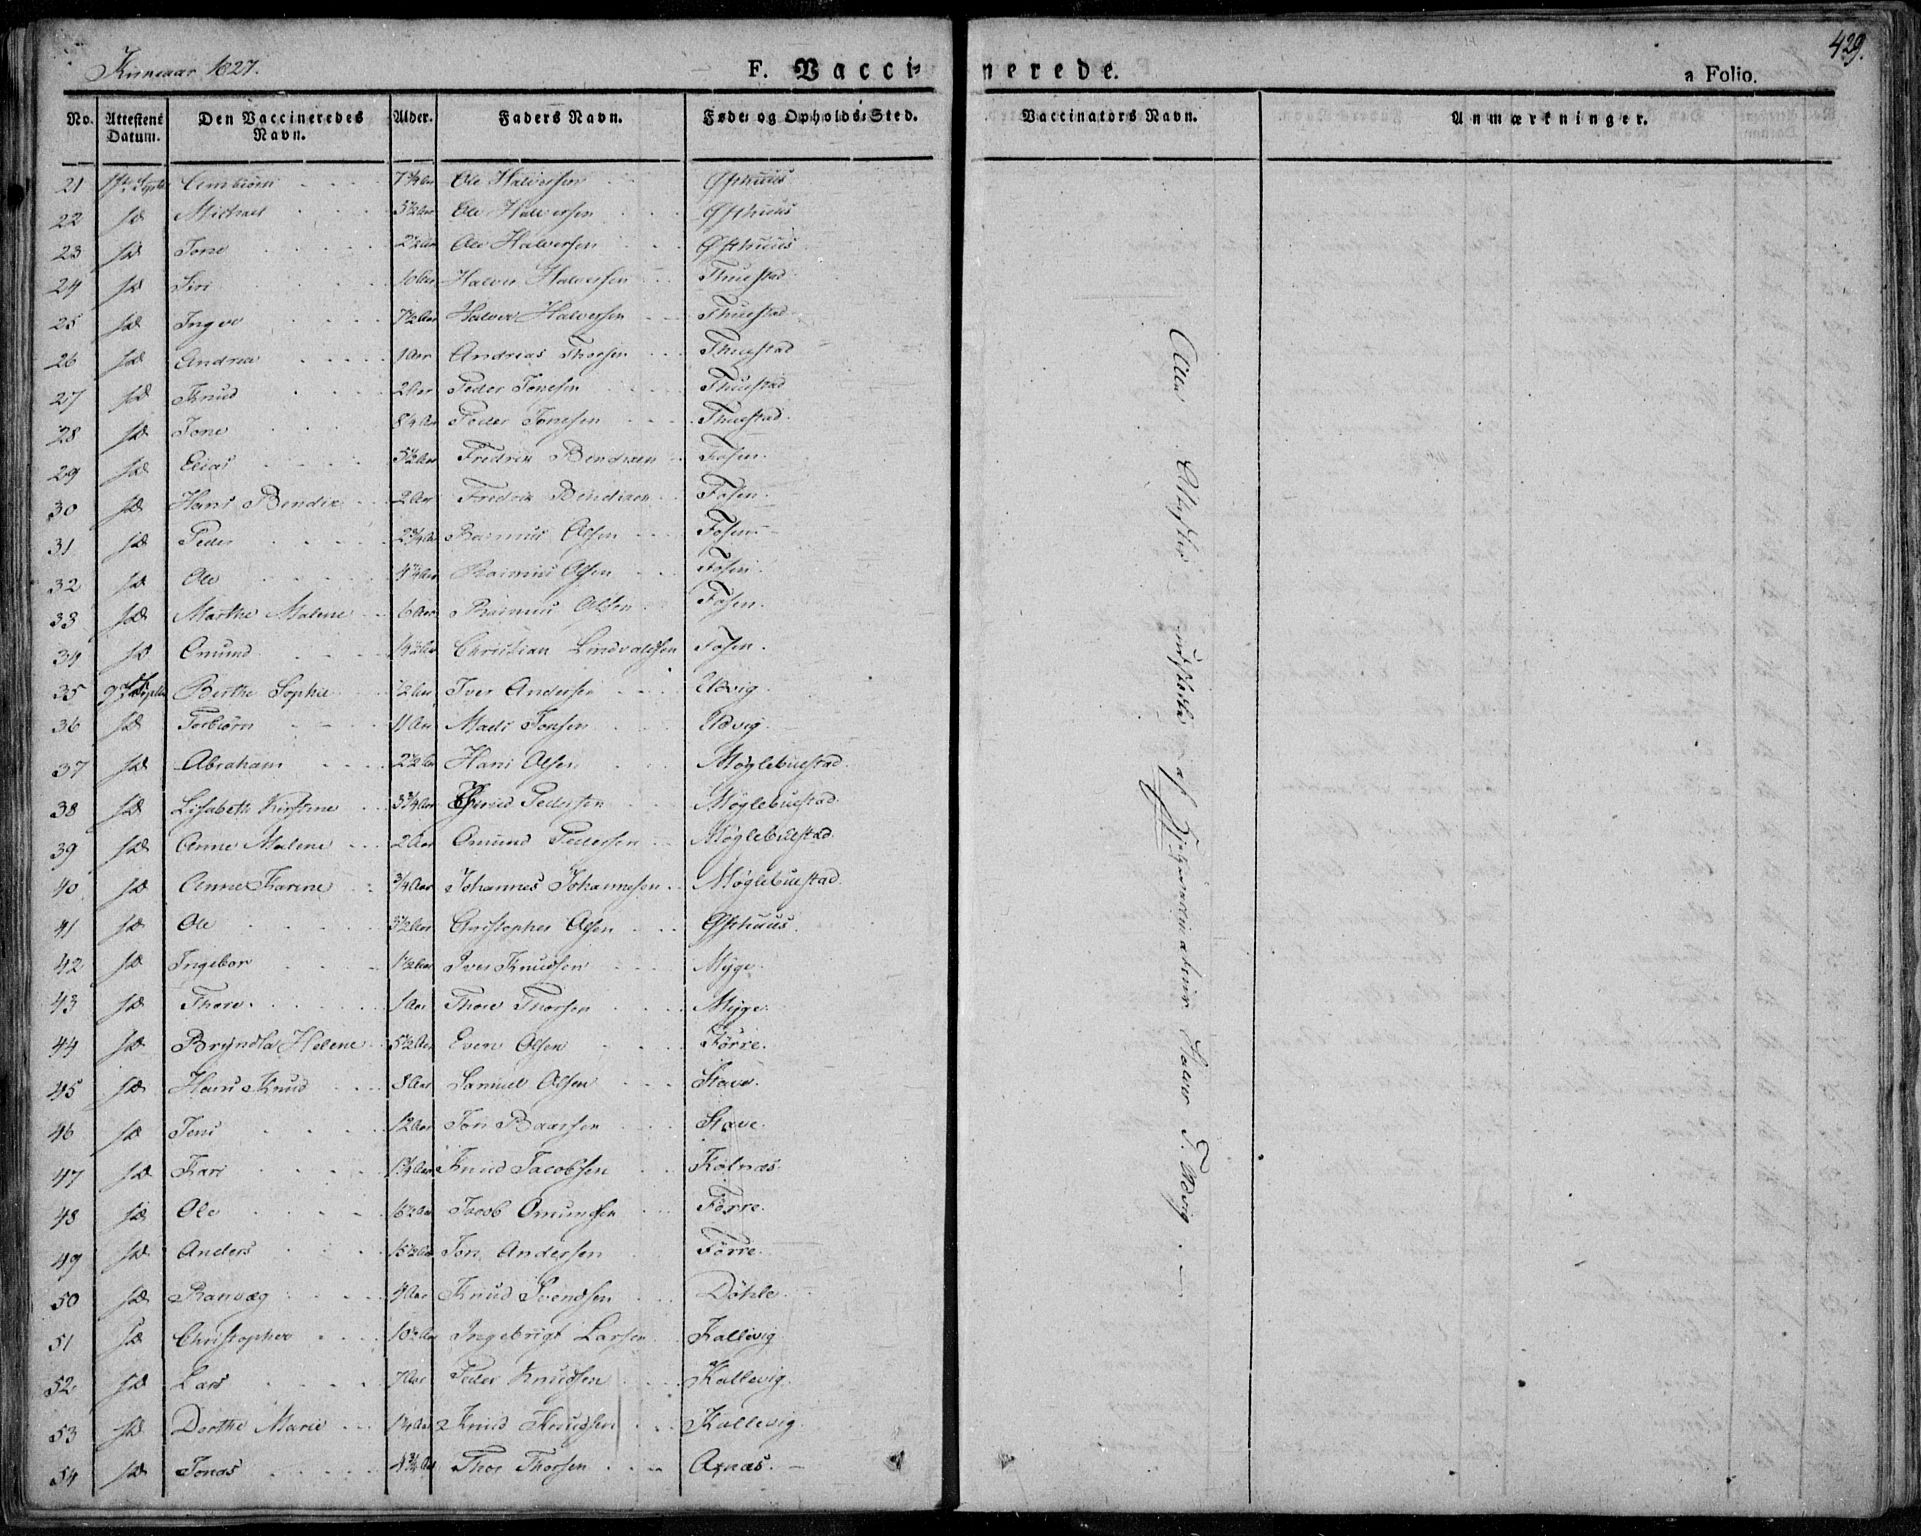 Kirkeaar 1827. F. Vaccinerede. 429.
a Folio.
No. Attestens Datum. Den Vaccineredes Navn. Alder. Faders Navn. Føde- og Opholds-Sted. Vaccinators Navn. Anmærkninger.
21 Septbr Ole Halversen Østhuus
22 do Michael 3½ Aar Ole Halversen Østhuus
23 do Tone 2½ Aar Ole Halversen Østhuus
24 do Siri 10 Aar Halver Halversen Thuestad
25 do Ingve 7½ Aar Halver Halversen Thuestad
26 do Andrea 1 Aar Andreas Thorsen Thuestad
27 do Knud 2 Aar Peder Tonesen Thuestad
28 do Tone Peder Tonesen Thuestad
29 do Elias 5½ Aar Fredrik Bendixen Fosen.
30 do Hans Bendix 2 Aar Fredrik Bendixen Fosen.
31 do Peder 2¾ Aar Rasmus Olsen Fosen
32 do Ole Rasmus Olsen Fosen
33 do Marthe Malene 6 Aar Rasmus Olsen Fosen.
34 do Omund Christian Lindvaldsen Fosen.
35 Septbr Berthe Sophie ½ Aar Iver Andersen Udvig
36 do Torbiørn 11 Aar Mads Tonsen Udvig
37 do Abraham 2½ Aar Hans Olsen Møglebuestad.
38 do Lisabeth Kirstine 3¾ Aar Pedersen Møglebuestad.
39 do Anne Malene 2 Aar Omund Pedersen Møglebuestad
40 do Anne Karine ¾ Aar Johannes Johannesen Møglebuestad.
41 do Ole 3½ Aar Christopher Olsen Østhuus.
42 do Ingebor 1½ Aar Iver Knudsen Myge.
43 do Thore. 1 Aar Thore Thorsen Myge.
44 do Bryndla Helene 5½ Aar Even Olsen Førre.
45 do Hans Knud 8 Aar Samuel Olsen Stave.
46 do Jens 12 Aar Jon Baarsen Stave.
47 do Kari Knud Jacobsen Kolnæs
48 do Ole 16½ Aar Jacob Omundsen Førre
49 do Anders 15½ Aar Jon Andersen Førre.
50 do Ranvæg Knud Svendsen Døhle
51 do Christopher 10½ Aar Ingebrigt Larsen Kallevig
52 do Lars 7 Aar Peder Knudsen Kallevig.
53 do Dorthe Marie Knud Knudsen Kallevig.
54 do Jonas Thor Thorsen Axnæs.
Alle Attester udstedte af Hjelpevaccinateur Halvor T. Udvig.